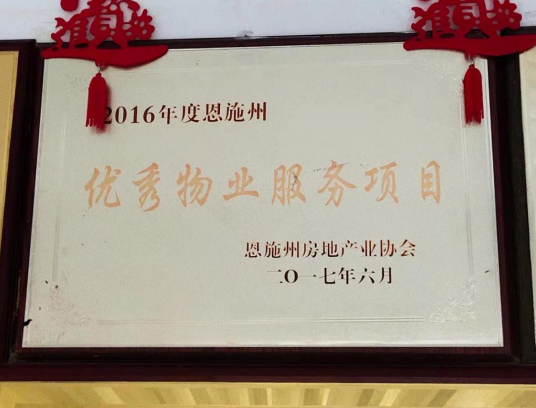 2016年度恩施州
优秀物业服务项目
恩施州房地产业协会
二〇一七年六月